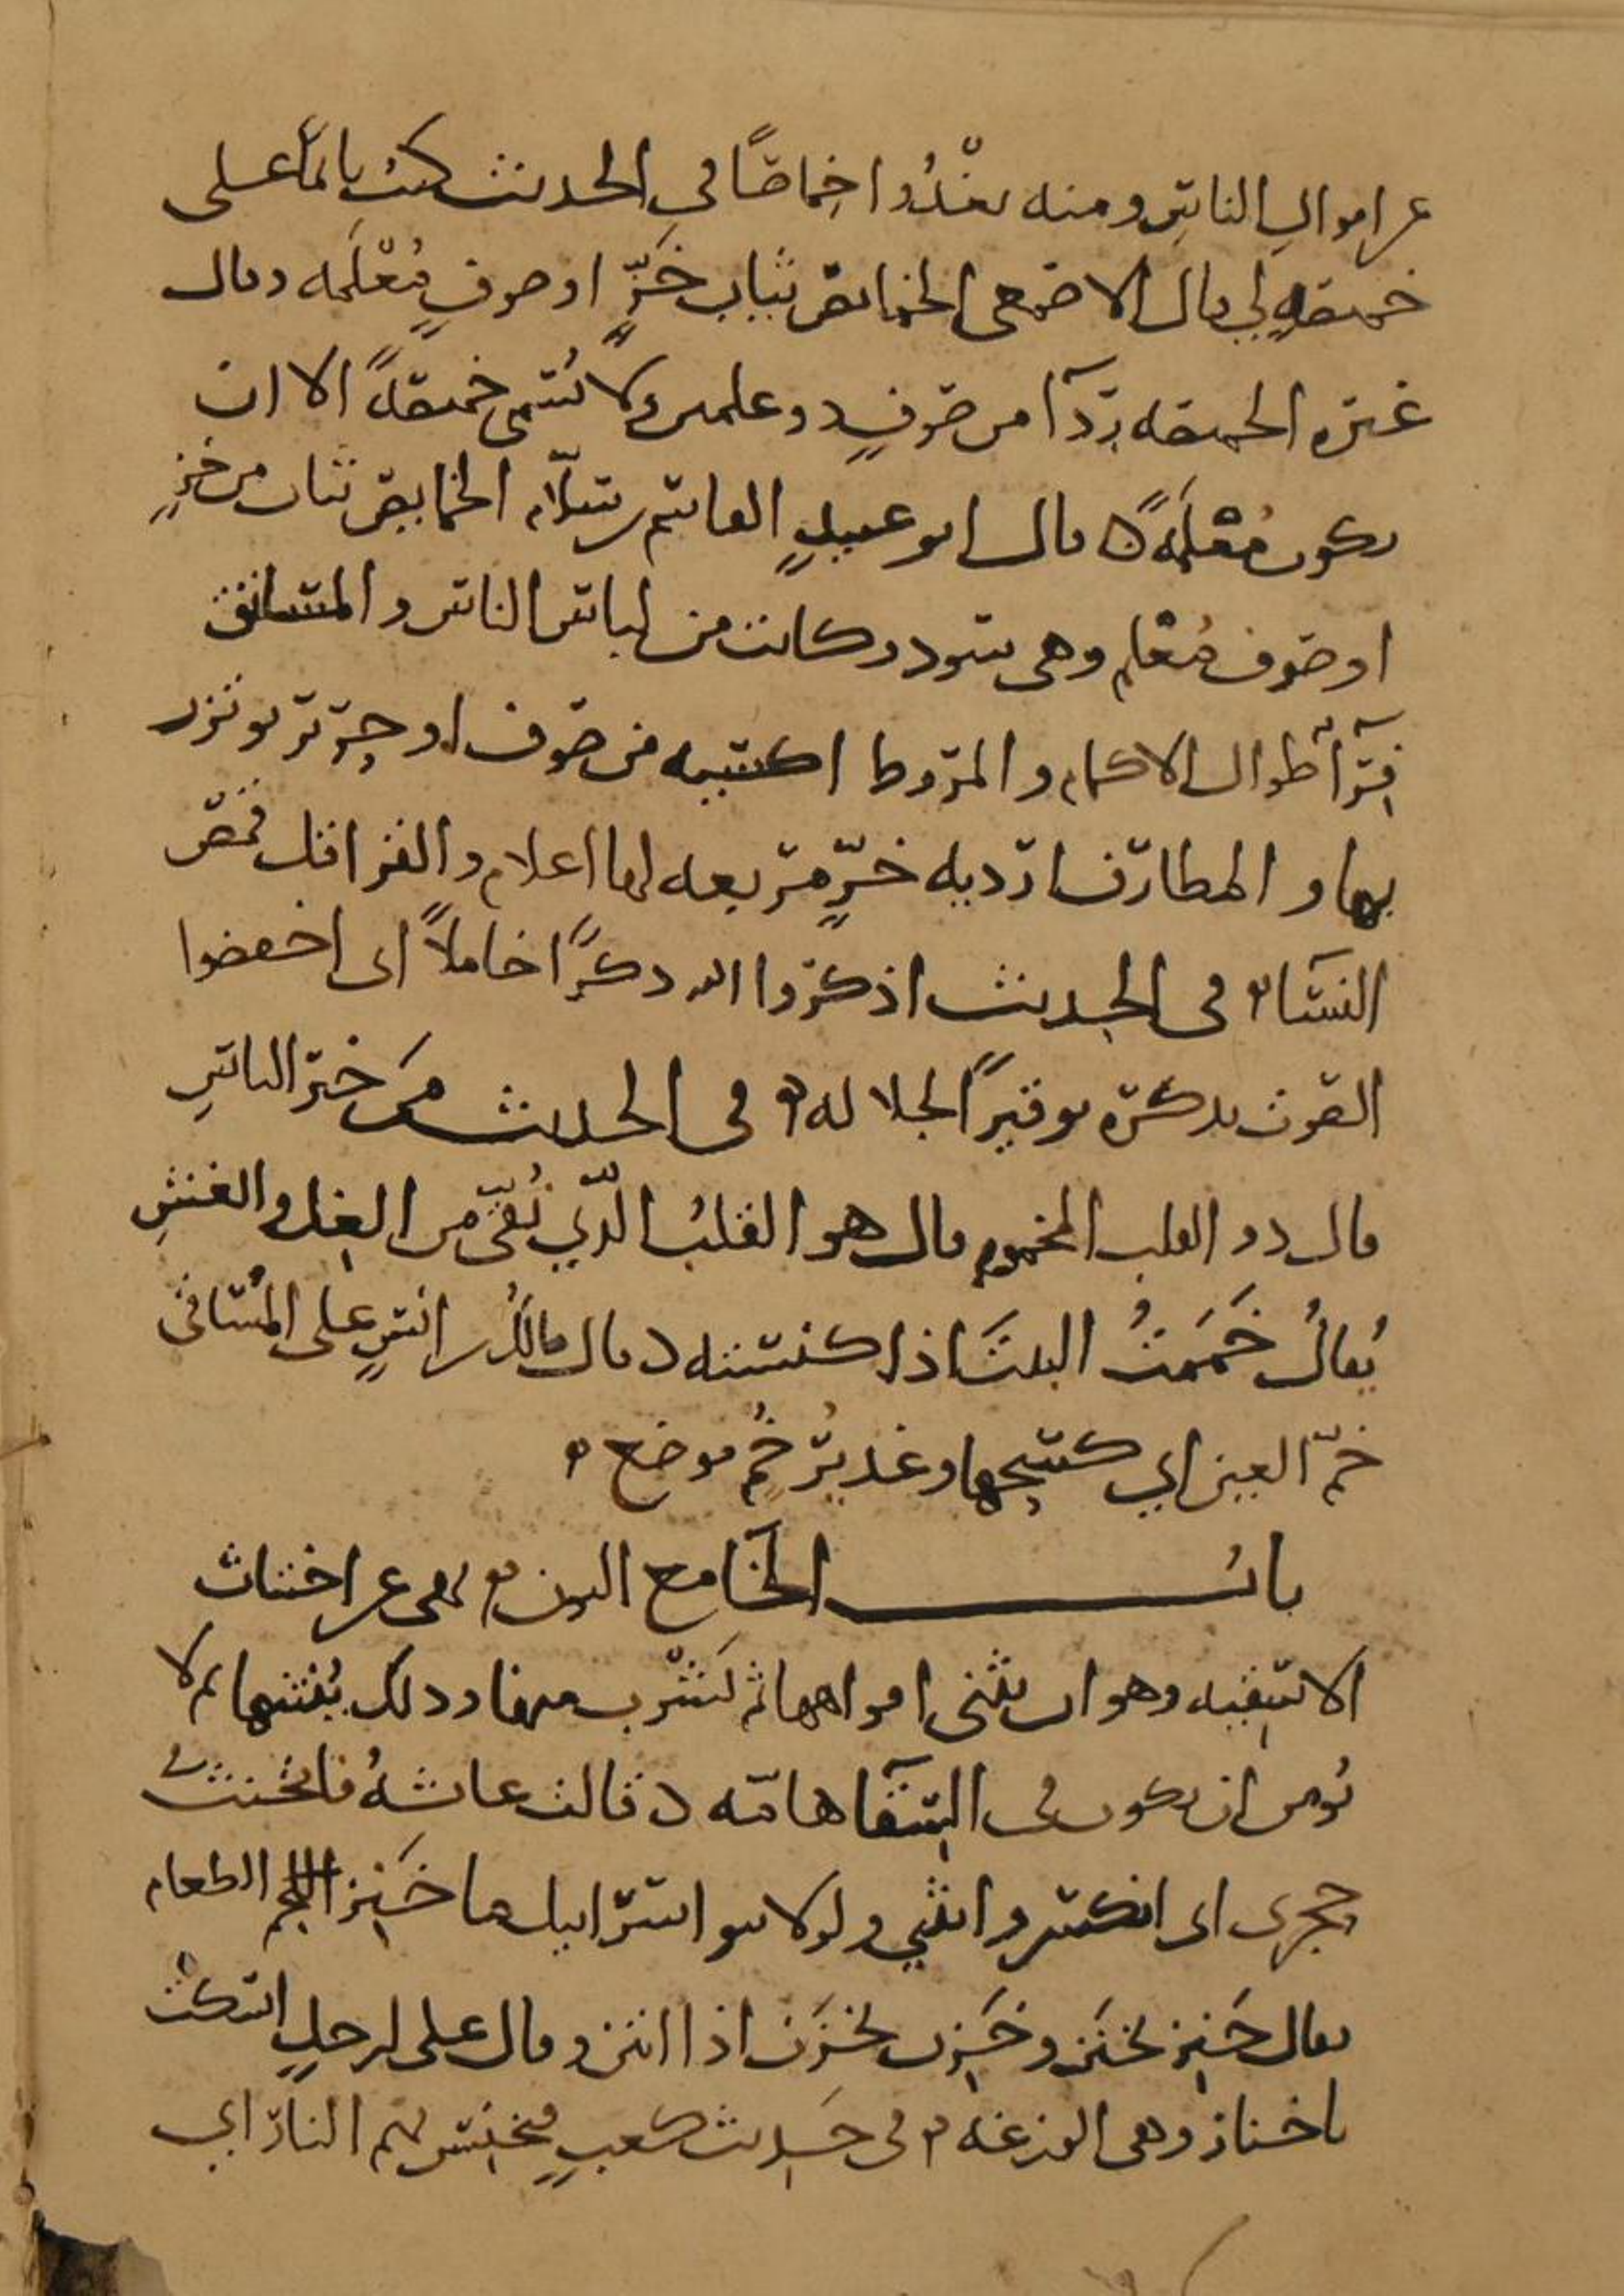 عن اموال الناس ومنه تغْدُوا خِماصًا في الحديث جئت اليها وعلى
خميصةٍ لي قال الاصمعى الخمائص ثياب خَزٍّ او صوفٍ مُعْلَمه وقال
غيره الخميصه رداً من صوفٍ ذو علمين ولا تُسمى خميصةً الا ان
يكون مُعْلَمةً قال ابو عبيدٍ القاسم بن سلّام الخمايص ثياب من خزٍ
او صوف مُعْلم وهى سود وكانت من لباس الناس والمساتق
فِرآءٌ طوال الاكمام والمروط اكسيه من صوف او خزّ يوتزر
بها والمطارف ارديه خزٍّ مربعه لها اعلام والقراقل قُمُص
النسآء في الحديث اذكروا الله ذكرًا خاملًا اى اخفضوا
الصوت بذكره توقيرًا لجلاله في الحديث مَن خير الناس
قال ذو القلب المخموم قال هو القلبُ الّذي نُقِّى من الغِل والغش
يُقالُ خَمَمتُ البيتَ اذا كنسته وقال مالكُ بن انسٍ على المُساقى
خمّ العين اي كسحها وغديرُ خُم موضع
بابُ الخآ مع النون نهى عن اختناث
الاسقيه وهو ان يثنى افواهها ثم يَشرب منها وذلك يُنتنها ثم لا
يُومن ان يكون في السقآ هامّه وقالت عائشهُ فانخنث
حجرى اى انكسر وانثني ولولا بنو اسرائيل ما خَنِز اللحم الطعام
يقال خَنِز يخنَز وخَزِن يخزَن اذا انتن وقال على لرجلٍ اسكت
ياخناز وهى الوزغه في حديث كعبٍ فتخنِس بهم النار اي